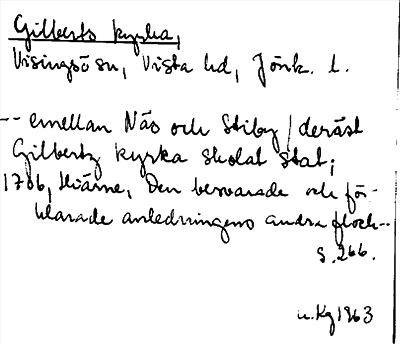 Gilberts kyrka,
Visingsö sn, Vista hd, Jönk. l.
-- emellan Näs och Stiby / deräst
Gilbertz kyrka skolat stat;
1706, Hiärne, Den besvarade och för-
klarade anledningens andra flock--
s. 266.
u. Kg 1963